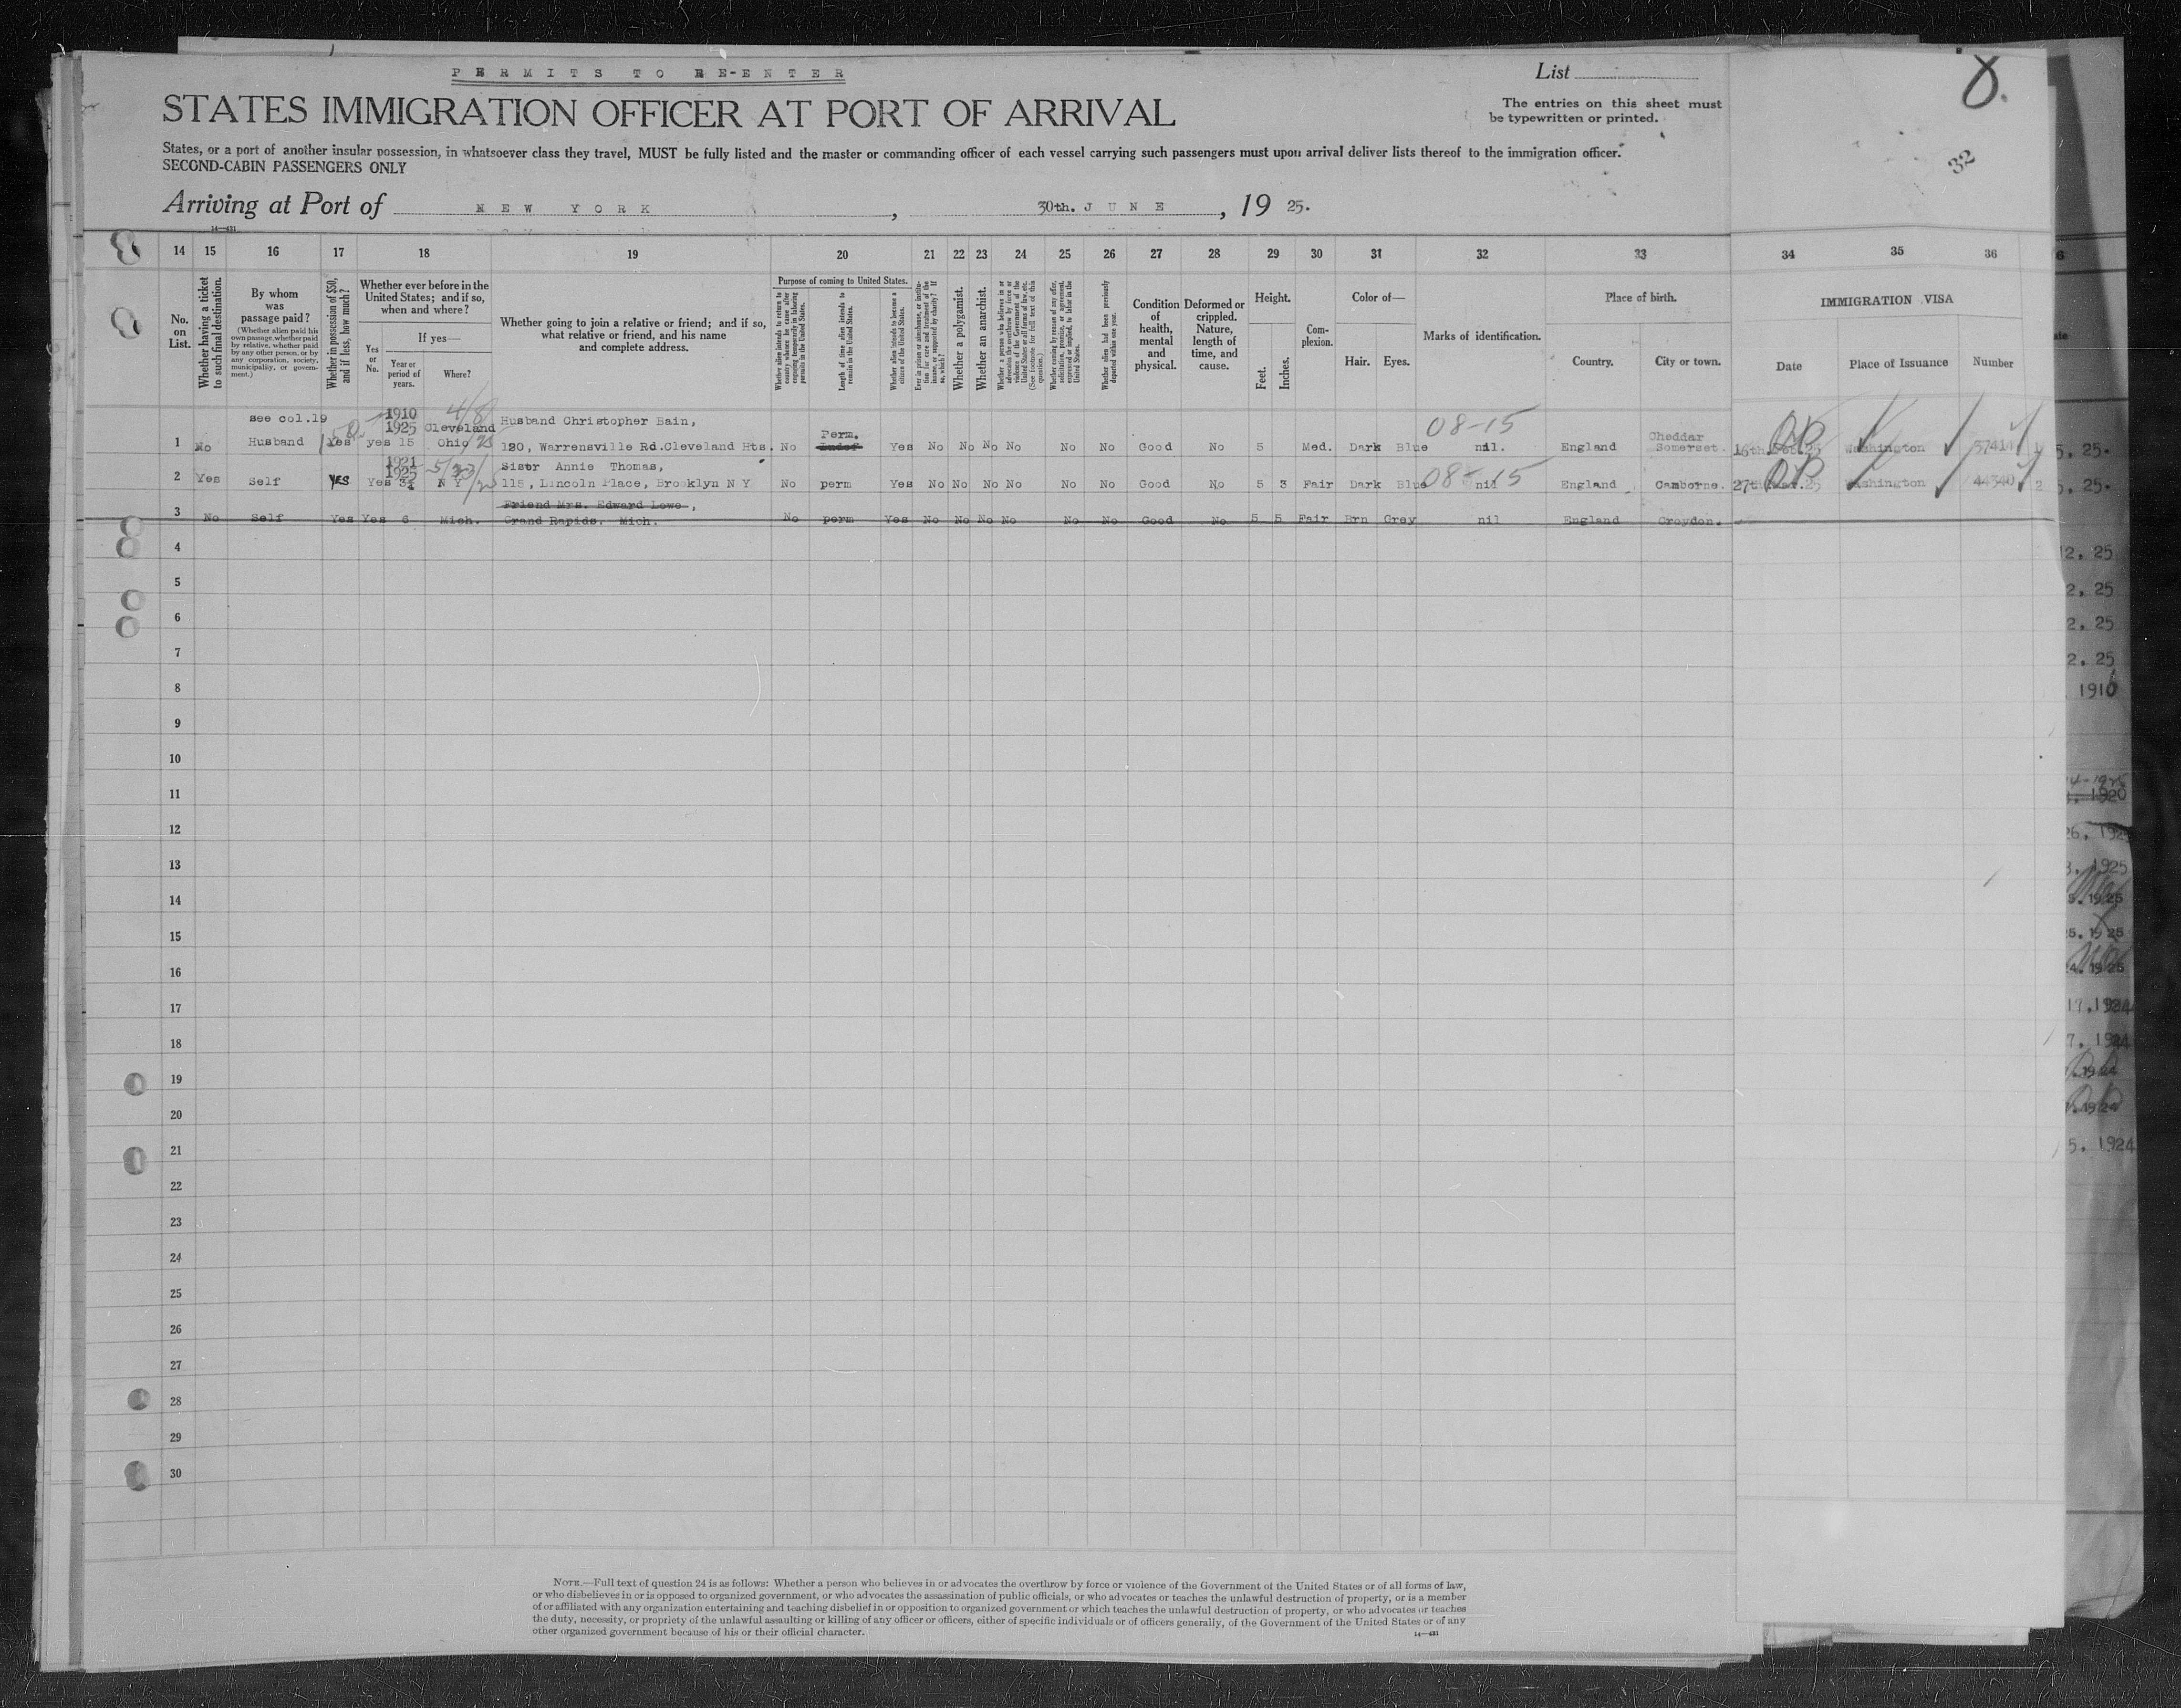 PERMITS TO RE-ENTER
List
STATES IMMIGRATION OFFICER AT PORT OF ARRIVAL
The entries on this sheet must
be typewritten or printed.
States, or a port of another insular possession, in whatsoever class they travel, MUST be fully listed and the master or commanding officer of each vessel carrying such passengers must upon arrival deliver lists thereof to the immigration officer.
SECOND-CABIN PASSENGERS ONLY
32
Arriving at Port of NEW YORK, 30th. JUNE, 19 25.
14—431
14 15 16 17 18 19 20 21 22 23 24 25 26 27 28 29 30 31 32 33 34 35 36
No. on List.
Whether having a ticket to such final destination.
By whom was passage paid?
(Whether alien paid his own passage, whether paid by relative, whether paid by any other person, or by any corporation, society, municipality, or government.)
Whether in possession of $50, and if less, how much?
Whether ever before in the United States; and if so, when and where?
Yes or No.
If yes—
Year or period of years.
Where?
Whether going to join a relative or friend; and if so, what relative or friend, and his name and complete address.
Purpose of coming to United States.
Whether alien intends to return to country whence he came after engaging temporarily in laboring pursuits in the United States.
Length of time alien intends to remain in the United States.
Whether alien intends to become a citizen of the United States.
Ever in prison or almshouse, or institution for care and treatment of the insane, or supported by charity? If so, which?
Whether a polygamist.
Whether an anarchist.
Whether a person who believes in or advocates the overthrow by force or violence of the Government of the United States or all forms of law, etc. (See footnote for full text of this question.)
Whether coming by reason of any offer, solicitation, promise, or agreement, expressed or implied, to labor in the United States.
Whether alien had been previously deported within one year.
Condition of health, mental and physical.
Deformed or crippled. Nature, length of time, and cause.
Height.
Feet.
Inches.
Complexion.
Color of—
Hair.
Eyes.
Marks of identification.
Place of birth.
Country.
City or town.
IMMIGRATION VISA
Date
Place of Issuance
Number
see col.19 1910 4/8 Husband Christopher Bain, 08-15
1925 Cleveland Perm. Cheddar
1 No Husband Yes yes 15 Ohio 120, Warrensville Rd.Cleveland Hts. No Indef Yes No No No No No No Good No 5 Med. Dark Blue nil. England Somerset. 16th Washington 57414
1921 Sister Annie Thomas,
1925 5/23/25 08-15
2 Yes Self YES Yes N Y 115, Lincoln Place, Brooklyn N Y No perm Yes No No No No No No Good No 5 3 Fair Dark Blue nil England Camborne. 27th 25 Washington 44340
Friend Mrs. Edward Lowe,
3 No Self Yes Yes 6 Mich. Grand Rapids. Mich. No perm Yes No No No No No No Good No 5 5 Fair Brn Grey nil England Croydon.
4
5
6
7
8
9
10
11
12
13
14
15
16
17
18
19
20
21
22
23
24
25
26
27
28
29
30
NOTE.—Full text of question 24 is as follows: Whether a person who believes in or advocates the overthrow by force or violence of the Government of the United States or of all forms of law,
or who disbelieves in or is opposed to organized government, or who advocates the assassination of public officials, or who advocates or teaches the unlawful destruction of property, or is a member
of or affiliated with any organization entertaining and teaching disbelief in or opposition to organized government or which teaches the unlawful destruction of property, or who advocates or teaches
the duty, necessity, or propriety of the unlawful assaulting or killing of any officer or officers, either of specific individuals or of officers generally, of the Government of the United States or of any
other organized government because of his or their official character.
14—431